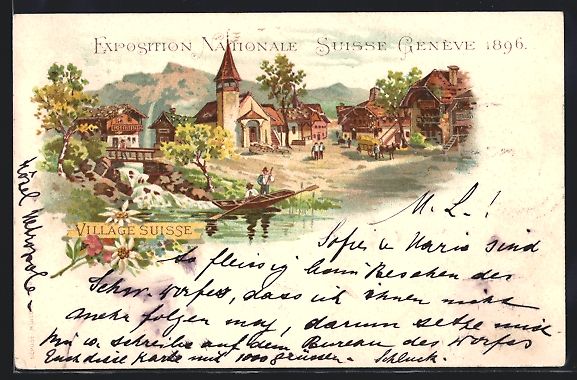 EXPOSITION NATIONALE SUISSE GENÈVE 1896.
VILLAGE SUISSE
Hôtel Metropole
M. L.!
Sofie u Mario sind
so fleissig beim Besehen des
Schw. Dorfes, dass ich ihnen nicht
mehr folgen mag, darum setze mich
hin u. schreibe auf dem Bureau des Dorfes
Euch diese Karte mit 1000 grüssen. Schluck.